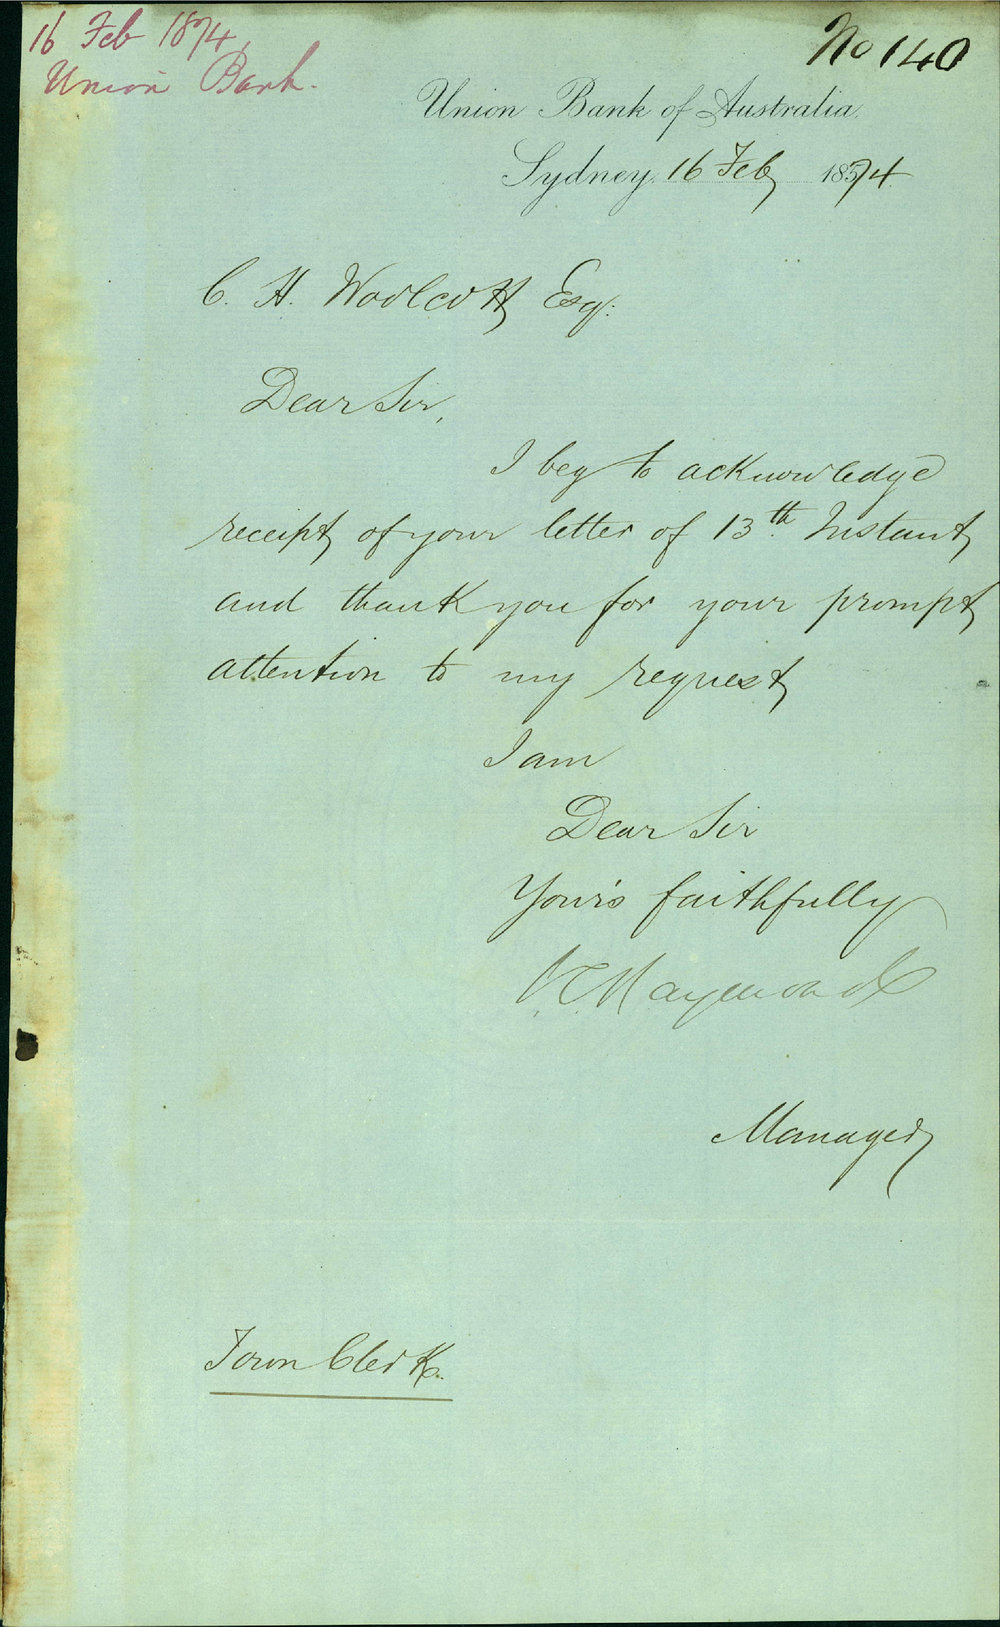 16 Feb 1874,
Union Bank.
No 140
Union Bank of Australia.
Sydney. 16 Feby 1874
C. H. Woolcott Esqr.
Dear Sir,
I beg to acknowledge
receipt of your letter of 13th. Instant
and thank you for your prompt
attention to my request
I am
Dear Sir
Your's faithfully
Raymond
Manager
Town Clerk.